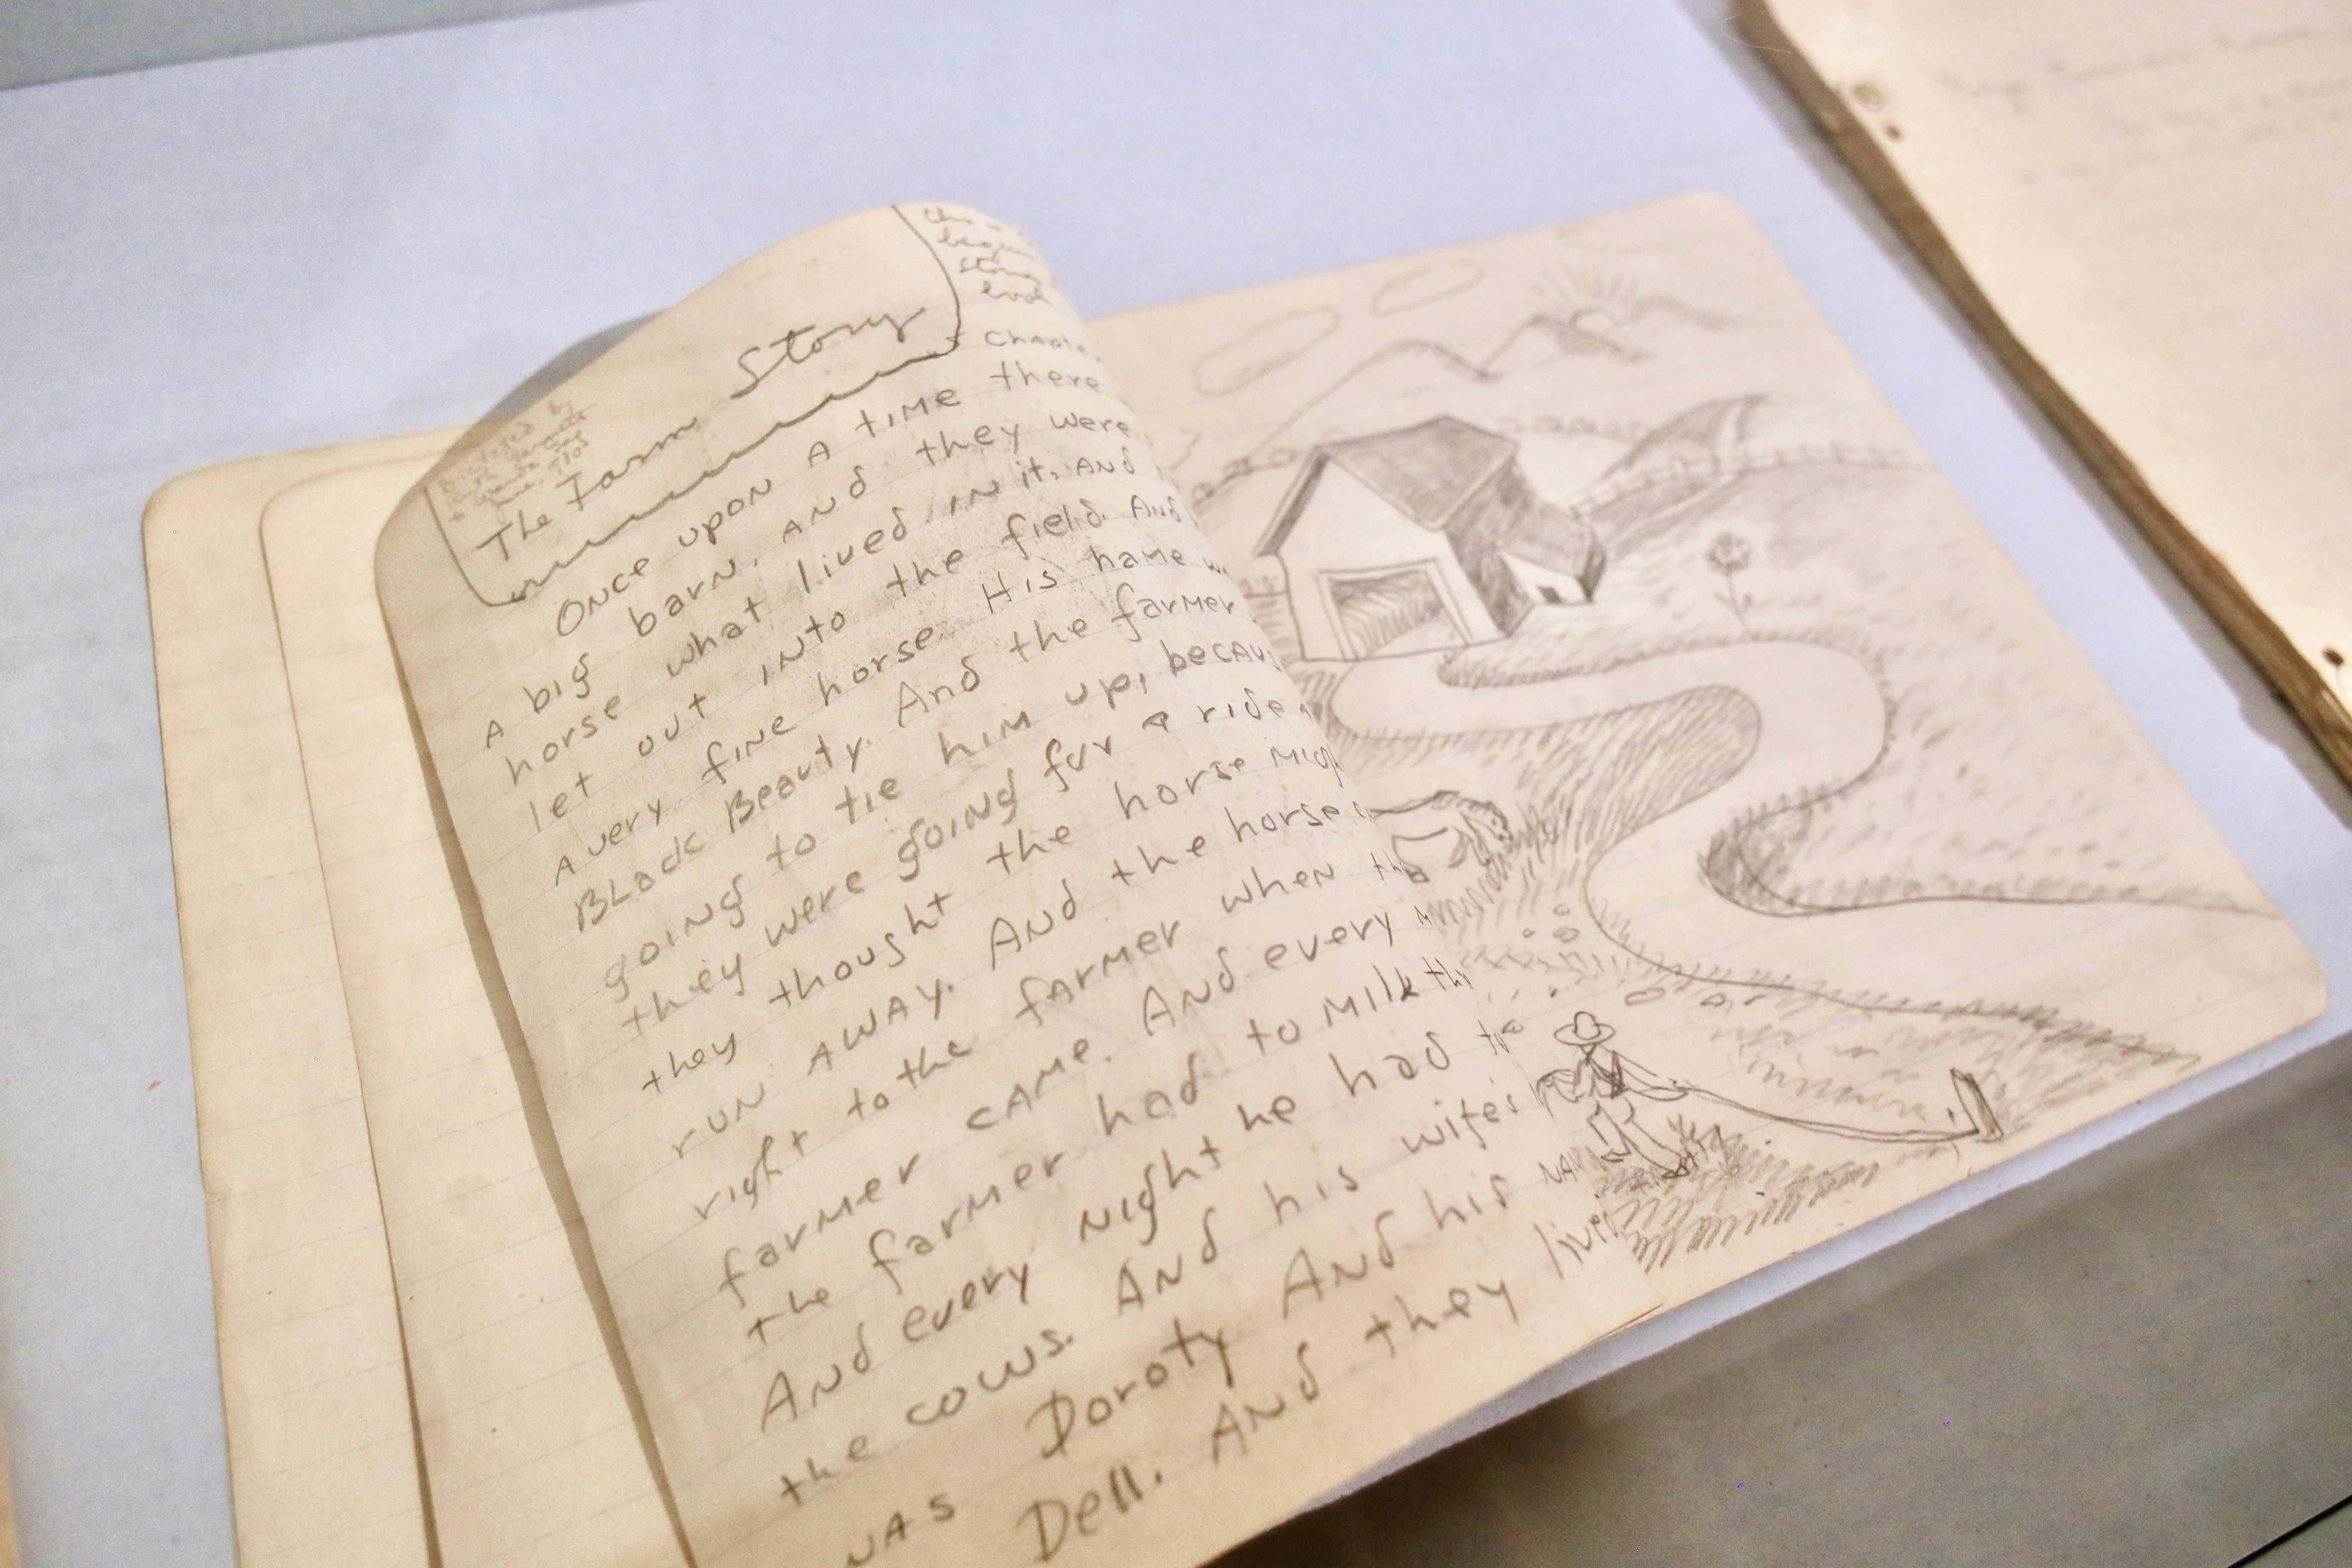 Dictated by
The Farm Story
Once upon a time there
a big barn, and they were
horse what lived in it, and
let out into the field. And
a very fine horse. His name
Black Beauty. And the farmer
going to tie him up, because
they were going for a ride,
they thought the horse
run away. And the horse
right to the farmer when the
farmer came. And every
the farmer had to milk
And every night he had to
the cows. And his wife's
was Doroty And his
Dell. And they